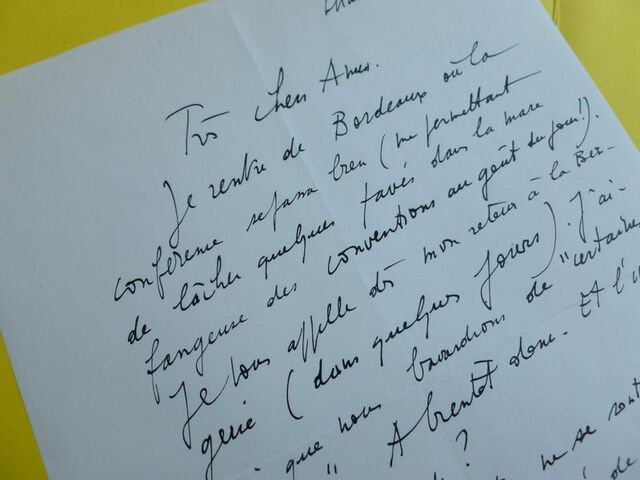 Très chers Amis.
Je rentre de Bordeaux où la
conférence se passa bien (me permettant
de lâcher quelques pavés dans la mare
fangeuse des conventions au goût du jour!).
Je vous appelle dès mon retour à la Ber-
gerie (dans quelques jours). J'ai-
que nous bavardions de "certaines
" A bientôt donc. Et l'
? ne se sont
de